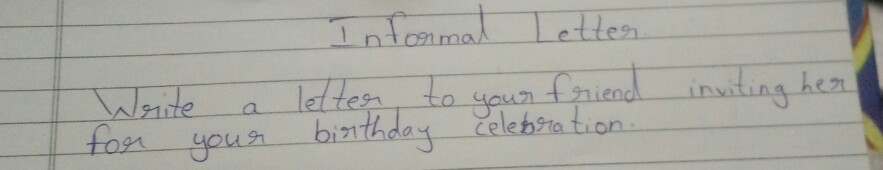 Informal Letter
Write a letter to your friend inviting her
for your birthday celebration.